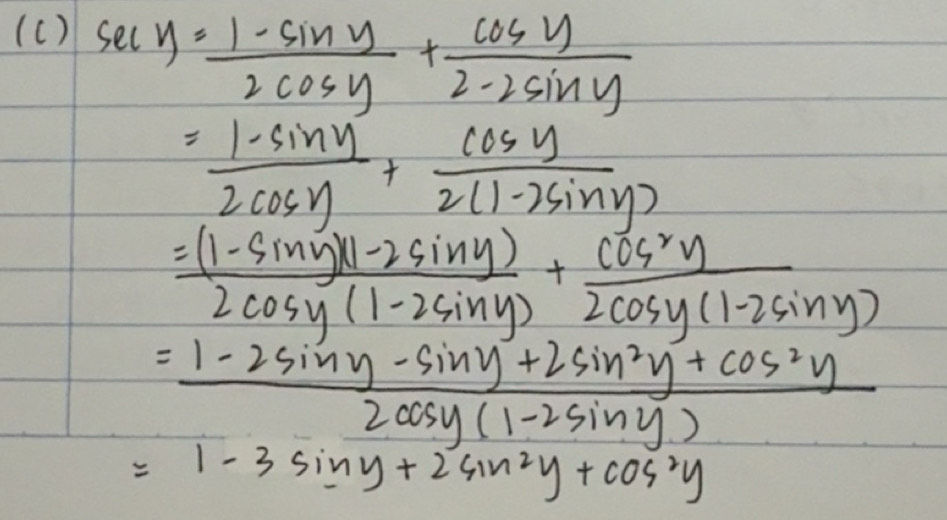 (c) sec y = (1 - sin y)/(2 cos y) + (cos y)/(2 - 2 sin y)
= (1 - sin y)/(2 cos y) + (cos y)/(2(1 - 2 sin y))
= ((1 - sin y)(1 - 2 sin y))/(2 cos y (1 - 2 sin y)) + (cos² y)/(2 cos y (1 - 2 sin y))
= (1 - 2 sin y - sin y + 2 sin² y + cos² y)/(2 cos y (1 - 2 sin y))
= 1 - 3 sin y + 2 sin² y + cos² y